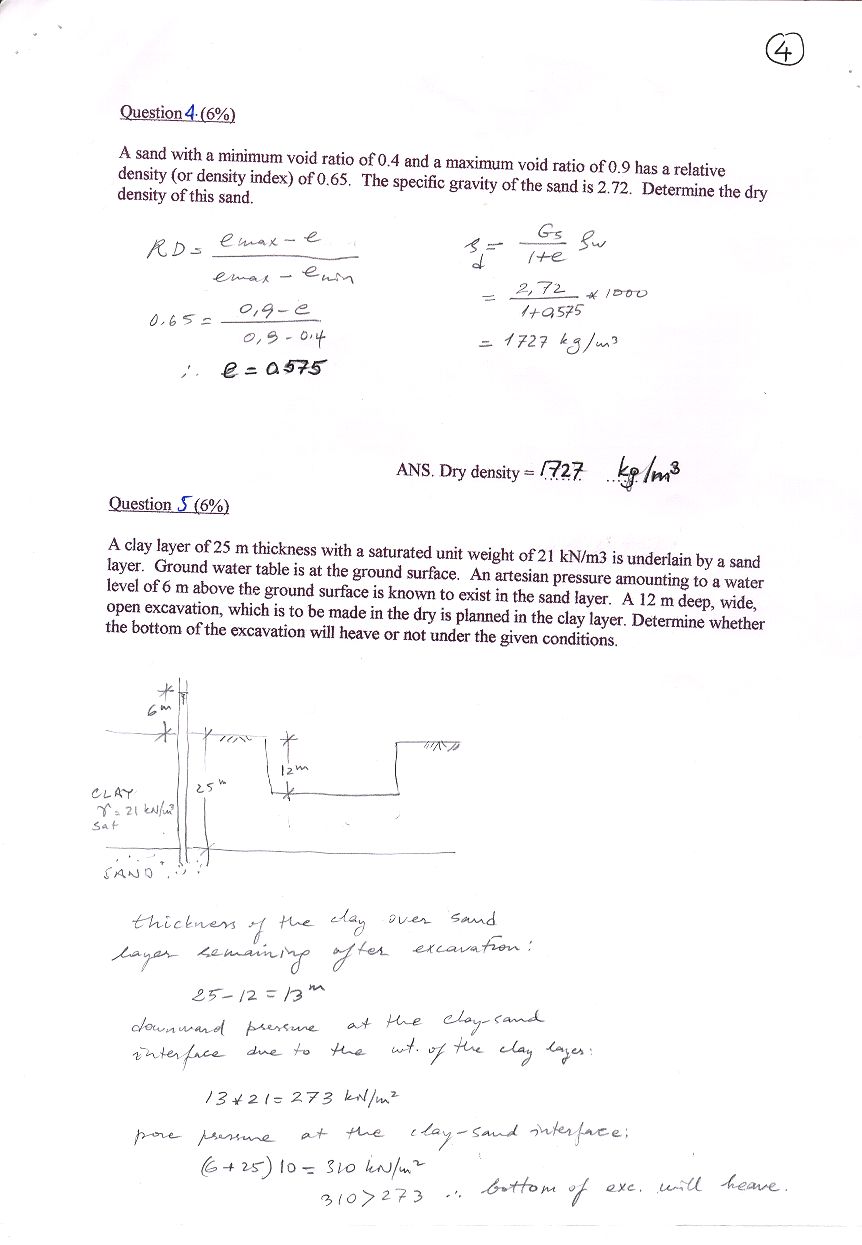 4
Question 4. (6%)
A sand with a minimum void ratio of 0.4 and a maximum void ratio of 0.9 has a relative
density (or density index) of 0.65. The specific gravity of the sand is 2.72. Determine the dry
density of this sand.
RD = emax - e / emax - emin
0.65 = 0,9 - e / 0,9 - 0.4
∴ e = 0.575
ρd = Gs / 1+e ρw
= 2,72 / 1+0,575 * 1000
= 1727 kg/m³
ANS. Dry density = 1727 kg/m³
Question 5 (6%)
A clay layer of 25 m thickness with a saturated unit weight of 21 kN/m3 is underlain by a sand
layer. Ground water table is at the ground surface. An artesian pressure amounting to a water
level of 6 m above the ground surface is known to exist in the sand layer. A 12 m deep, wide,
open excavation, which is to be made in the dry is planned in the clay layer. Determine whether
the bottom of the excavation will heave or not under the given conditions.
6 m
12 m
25 m
CLAY
γ = 21 kN/m³
sat
SAND
thickness of the clay over sand
layer remaining after excavation:
25 - 12 = 13 m
downward pressure at the clay-sand
interface due to the wt. of the clay layer:
13 * 21 = 273 kN/m²
pore pressure at the clay-sand interface:
(6 + 25) 10 = 310 kN/m²
310 > 273 ∴ bottom of exc. will heave.